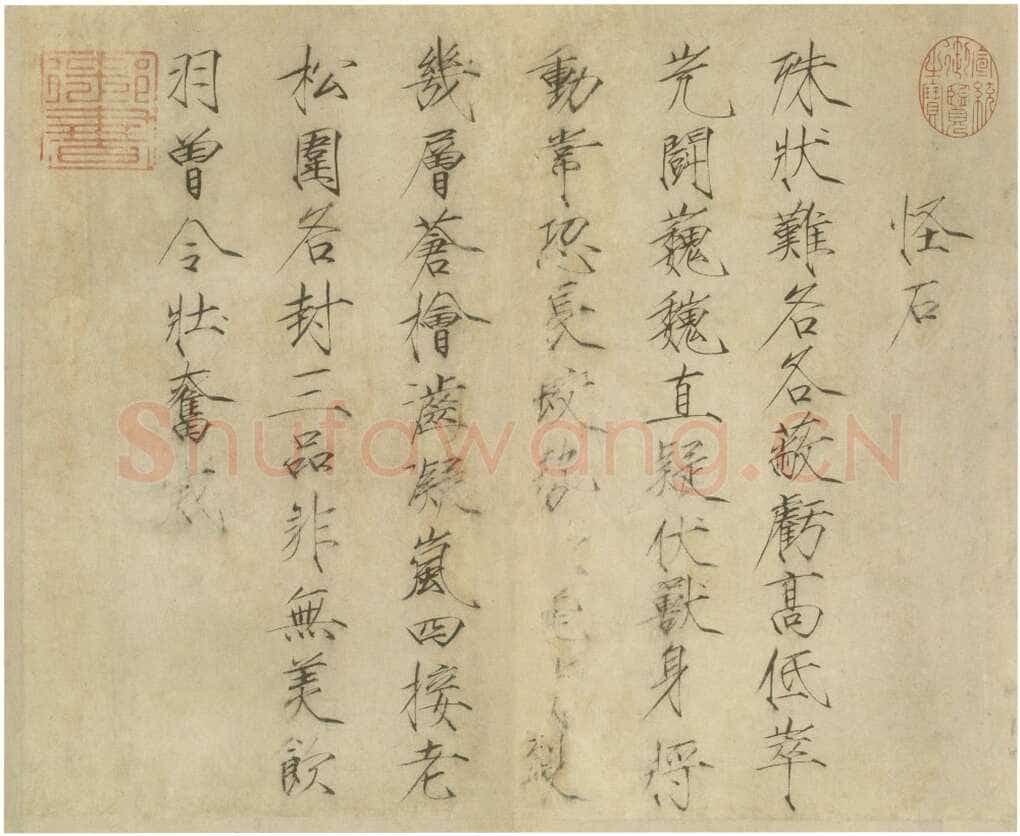 宣統御覽之寶
怪石
殊狀難名各蔽虧高低崒
岏闘巍巍直疑伏獸身將
動常恐長蛟勢色
幾層蒼檜凝嵐四接老
松圍名封三品非無美飲
羽曾令壯奮
Shufawang.CN